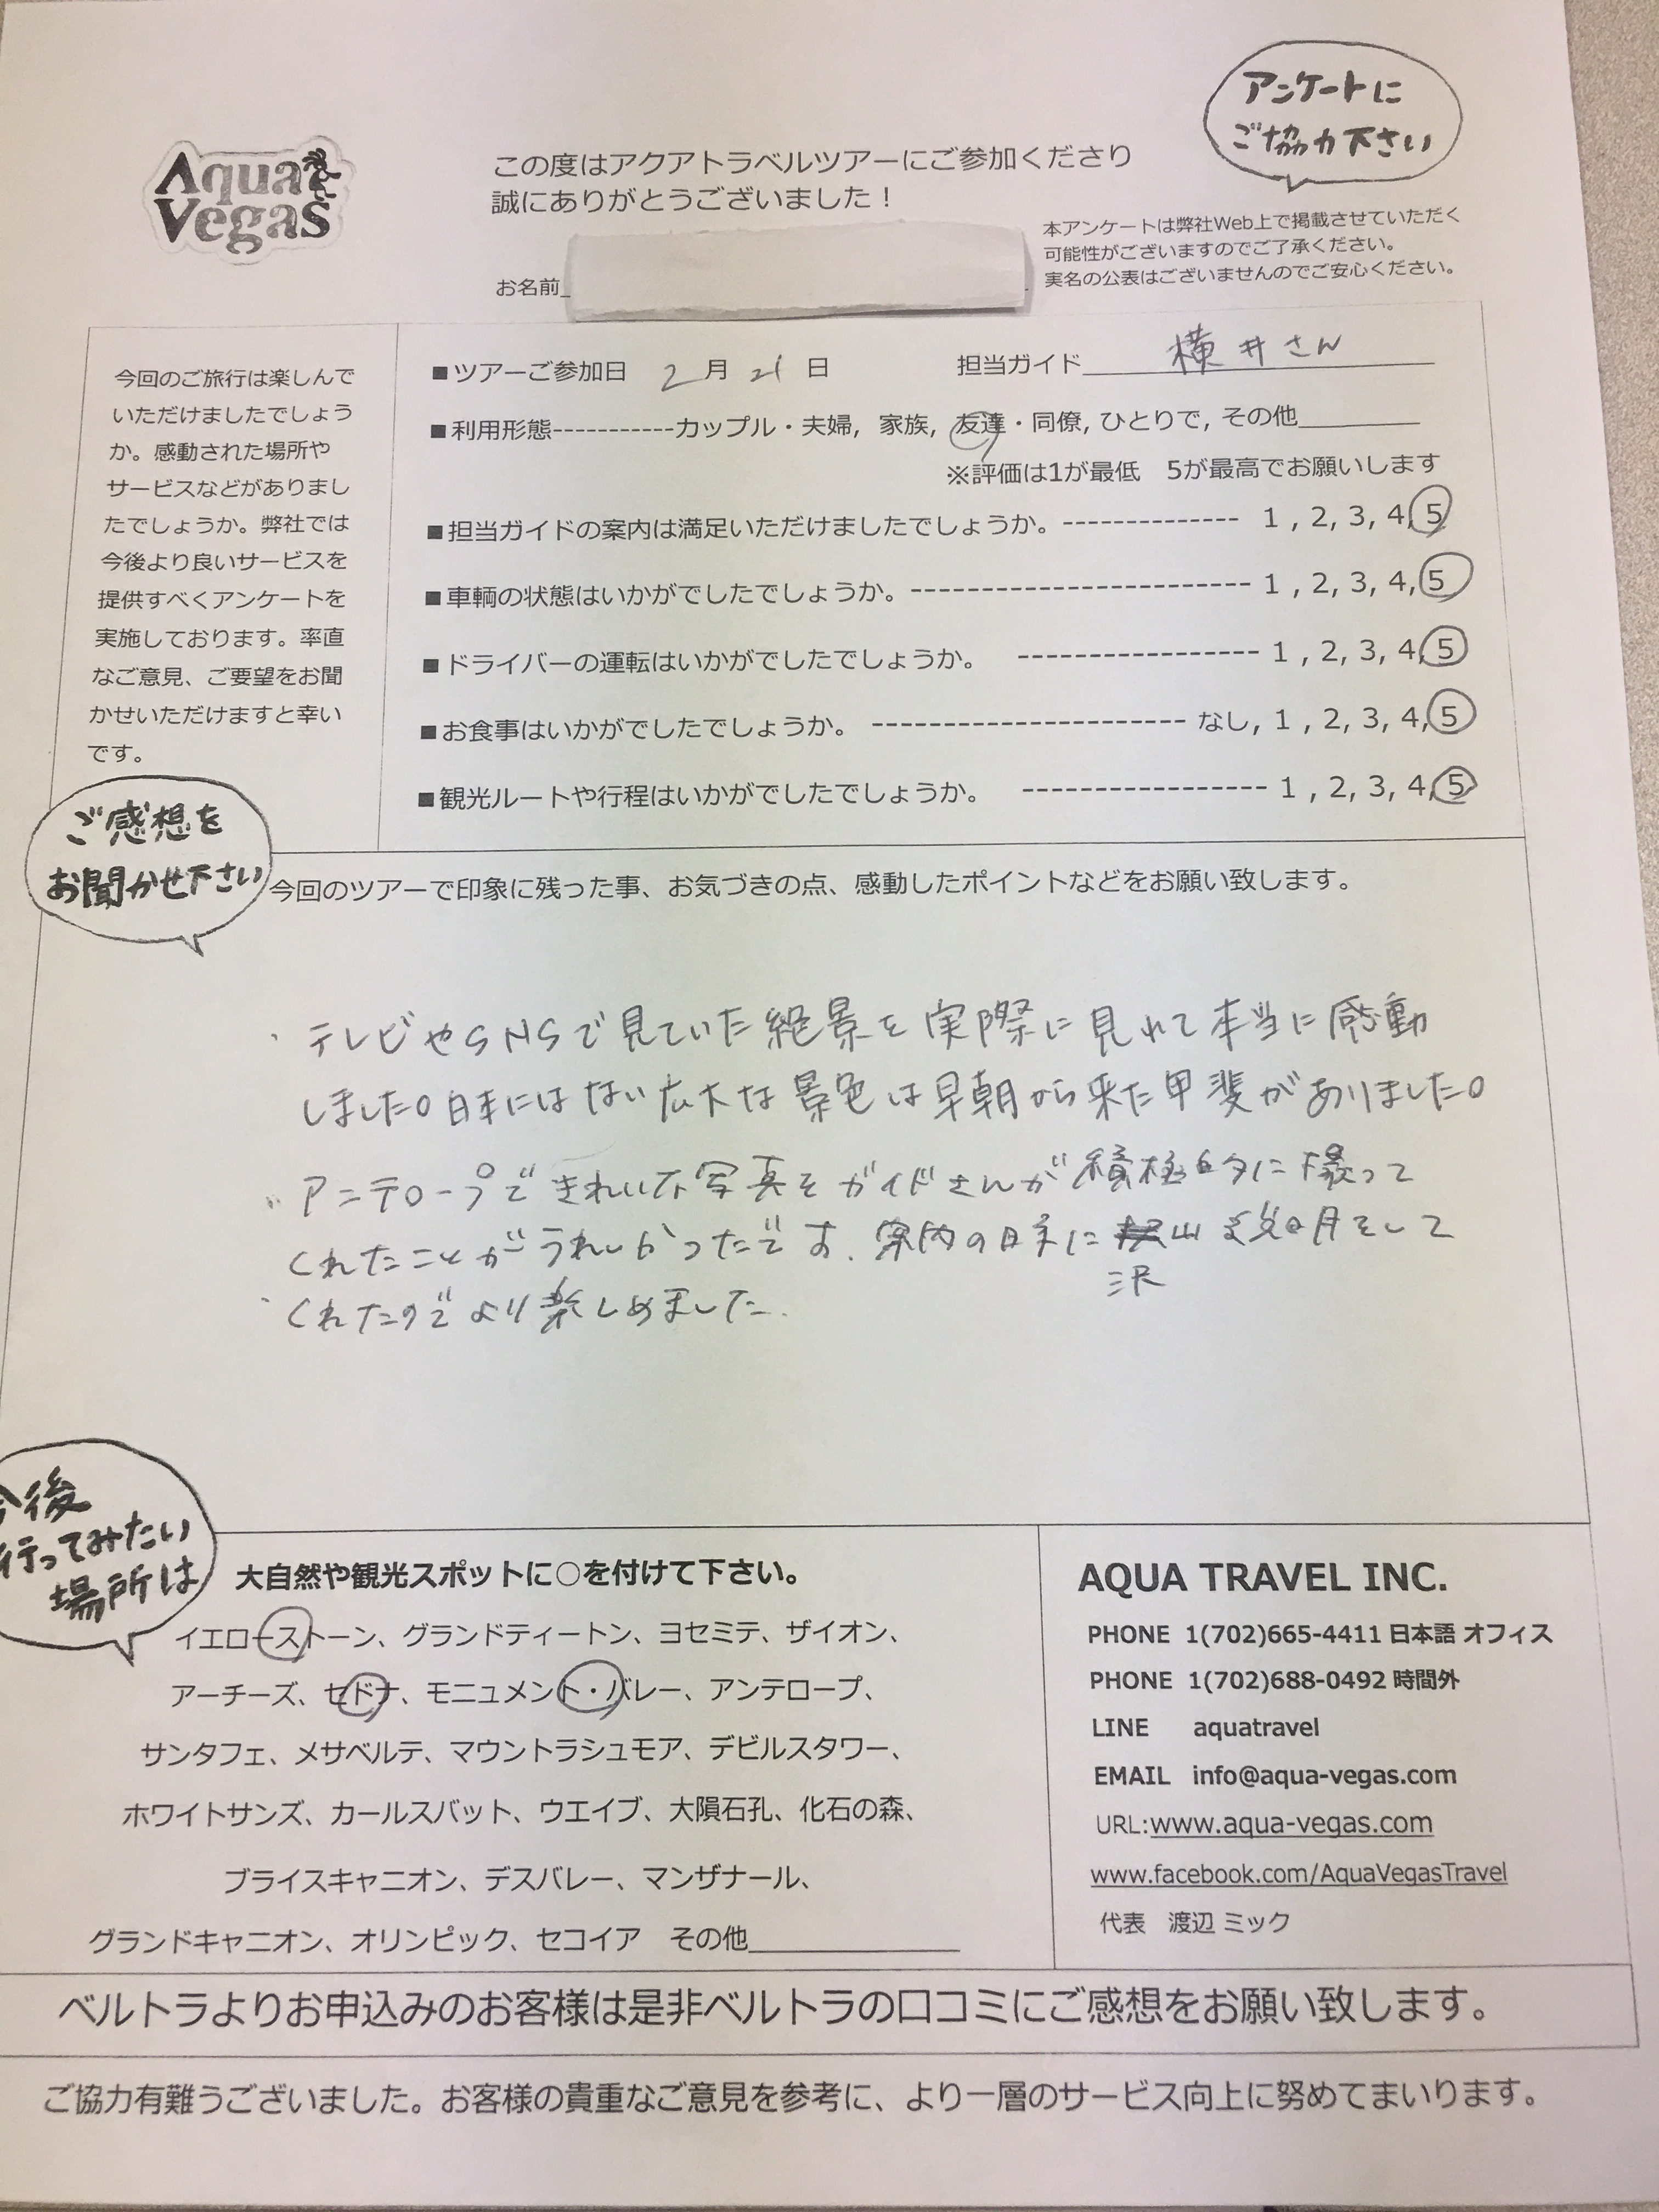 アンケートに
ご協力下さい
Aqua
Vegas
この度はアクアトラベルツアーにご参加くださり
誠にありがとうございました！
本アンケートは弊社Web上で掲載させていただく
可能性がございますのでご了承ください。
実名の公表はございませんのでご安心ください。
お名前
今回のご旅行は楽しんで
いただけましたでしょう
か。感動された場所や
サービスなどがありまし
たでしょうか。弊社では
今後より良いサービスを
提供すべくアンケートを
実施しております。率直
なご意見、ご要望をお聞
かせいただけますと幸い
です。
■ツアーご参加日 2月21日 担当ガイド 横井さん
■利用形態-----------カップル・夫婦, 家族, 友達・同僚, ひとりで, その他________
※評価は1が最低 5が最高でお願いします
■担当ガイドの案内は満足いただけましたでしょうか。-------------- 1 , 2, 3, 4, 5
■車輌の状態はいかがでしたでしょうか。--------------------------- 1 , 2, 3, 4, 5
■ドライバーの運転はいかがでしたでしょうか。 ----------------- 1 , 2, 3, 4, 5
■お食事はいかがでしたでしょうか。 ---------------------- なし, 1 , 2, 3, 4, 5
■観光ルートや行程はいかがでしたでしょうか。 ----------------- 1 , 2, 3, 4, 5
ご感想を
お聞かせ下さい
今回のツアーで印象に残った事、お気づきの点、感動したポイントなどをお願い致します。
・テレビやSNSで見ていた絶景を実際に見れて本当に感動
しました。日本にはない広大な景色は早朝から来た甲斐がありました。
・アンテロープできれいな写真をガイドさんが積極的に撮って
くれたことがうれしかったです。案内の日本に沢山説明をして
くれたのでより楽しめました。
今後
行ってみたい
場所は
大自然や観光スポットに○を付けて下さい。
イエローストーン、グランドティートン、ヨセミテ、ザイオン、
アーチーズ、セドナ、モニュメント・バレー、アンテロープ、
サンタフェ、メサベルテ、マウントラシュモア、デビルスタワー、
ホワイトサンズ、カールスバット、ウエイブ、大隕石孔、化石の森、
ブライスキャニオン、デスバレー、マンザナール、
グランドキャニオン、オリンピック、セコイア その他______________
AQUA TRAVEL INC.
PHONE 1(702)665-4411 日本語 オフィス
PHONE 1(702)688-0492 時間外
LINE aquatravel
EMAIL info@aqua-vegas.com
URL:www.aqua-vegas.com
www.facebook.com/AquaVegasTravel
代表 渡辺 ミック
ベルトラよりお申込みのお客様は是非ベルトラの口コミにご感想をお願い致します。
ご協力有難うございました。お客様の貴重なご意見を参考に、より一層のサービス向上に努めてまいります。